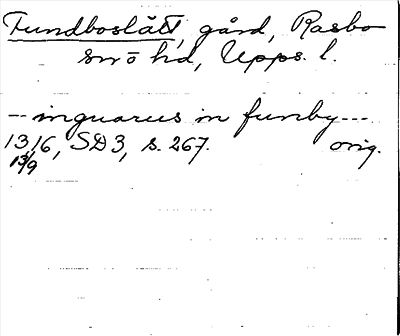 Fundboslätt, gård, Rasbo
sn ö hd, Upps. l.
-- inguarus in funby ---
1316, SD3, s. 267. orig.
13/9